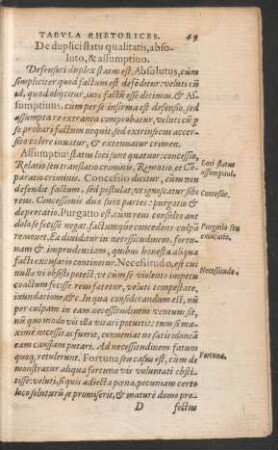 TABVLA RHETORICES. 49
De duplici statu qualitatis, abso-
luto, & assumptiuo.
Defensori duplex status est. Absolutus, cùm
simpliciter quod factum est defēditur: veluti cū
id, quod obijcitur, iure factū esse dicimus. & As-
sumptiuus, cum per se infirma est defensio, sed
assumpta re extranea comprobatur, veluti cū
se probari factum nequit, sed extrinsecus acces-
sio colore iuuatur, & extenuatur crimen.
Assumptiui status loci sunt quatuor: concessio,
Relatio seu translatio criminis, Remotio, et Cō-
paratio criminis. Concessio dicitur, cùm non
defendit factum, sed postulat, vt ignoscatur sibi
reus. Concessionis duæ sunt partes: purgatio &
deprecatio. Purgatio est, cùm reus consultò aut
dolo se fecisse negat factumque concedens culpā
remouet. Ea diuiditur in necessitudinem, fortu-
nam & imprudentiam, quibus honesta aliqua
facti excusatio continetur. Necessitudo, est cui
nulla vi obsisti potest: vt cùm se violento impetu
coactum fecisse reus fatetur, veluti tempestate,
inundatione, &c. In qua considerandum est, nū
per culpam in eam necessitudinem ventum sit,
nū quo modo vis illa vitari potuerit: tum si ma-
ximè necesse ea fuerit, conueniat ne sitne idoneā
eam caussam putari. Ad necessitudinem fatum
quoq, retulerunt. Fortuna seu casus est, cùm de
monstratur aliqua fortunæ vis voluntati obsti-
tisse: veluti, si quis adiecta pœna, pecuniam certo
loco soluturū se promiserit, & maturè domo pro-
D fectus
Loci status
assumptiui.
Concessio.
Purgatio seu
excusatio.
Necessitudo.
Fortuna.